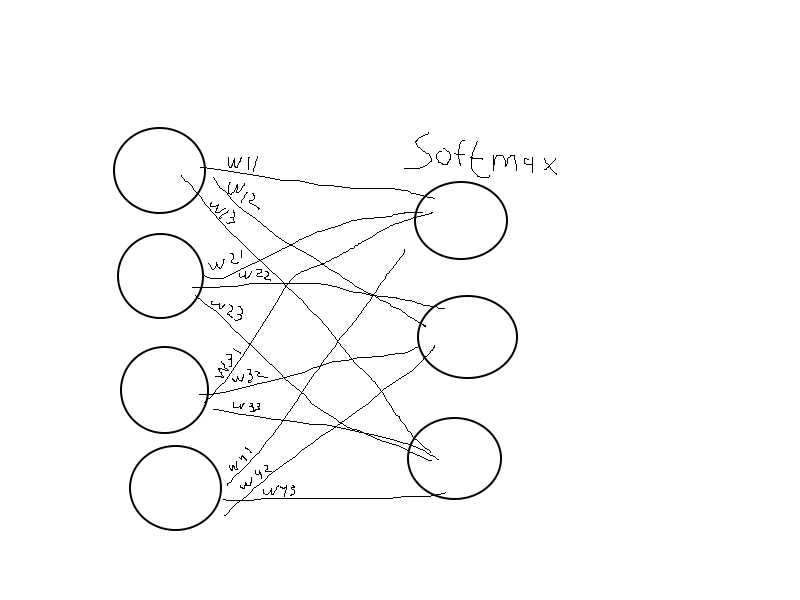 Softmax
W11
W12
W13
W21
W22
W23
W31
W32
W33
W41
W42
W43